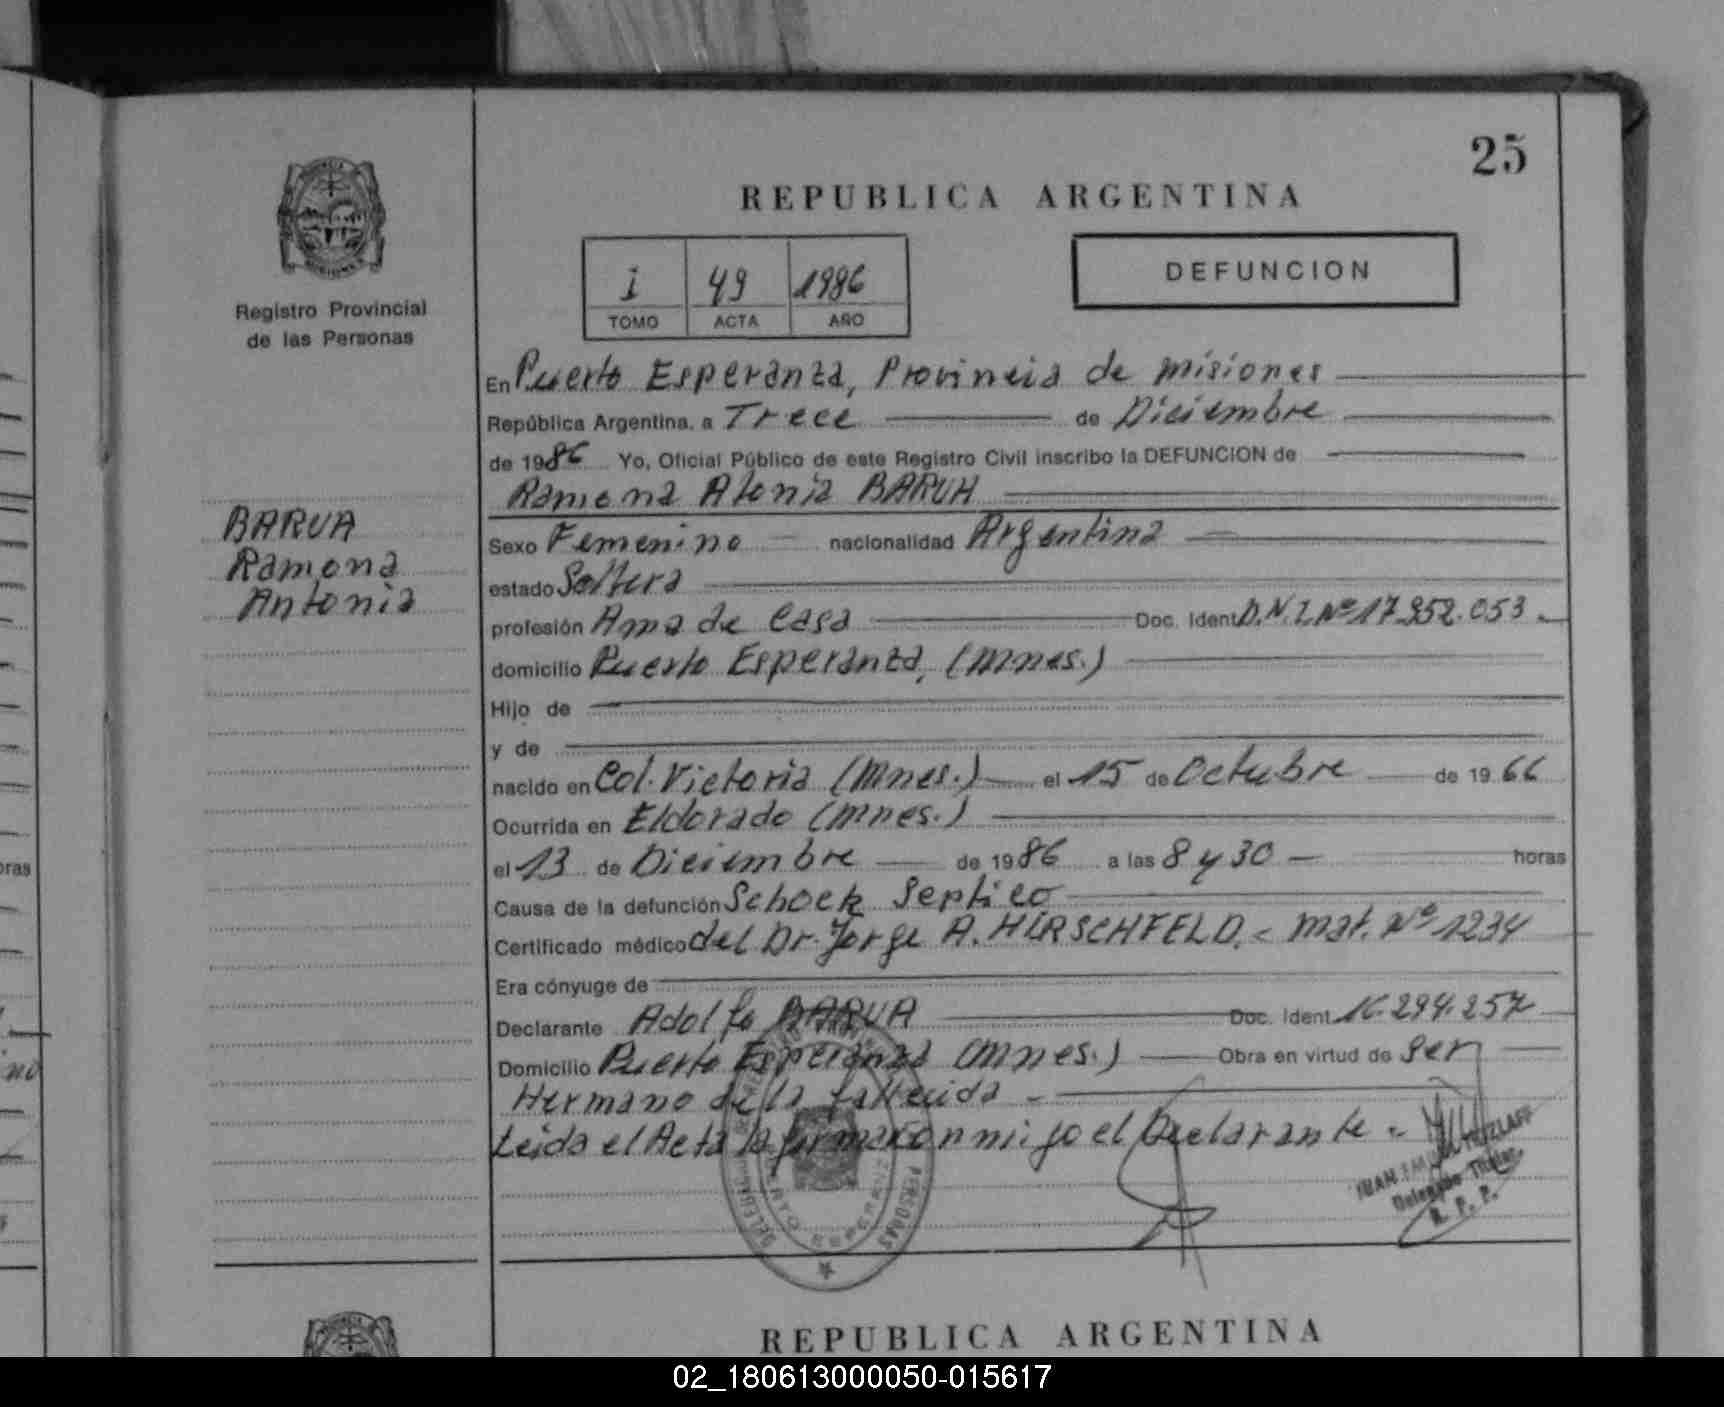 25
REPUBLICA ARGENTINA
I 49 1986
TOMO ACTA AÑO
DEFUNCION
Registro Provincial
de las Personas
BARUA
Ramona
Antonia
En Puerto Esperanza, Provincia de Misiones
República Argentina, a Trece de Diciembre
de 1986 Yo, Oficial Público de este Registro Civil inscribo la DEFUNCION de
Ramona Atonia BARUA
Sexo Femenino nacionalidad Argentina
estado Soltera
profesión Ama de Casa Doc. Ident. D.N.I. Nº 17.952.053.
domicilio Puerto Esperanza, (Mnes.)
Hijo de
y de
nacido en Col. Victoria (Mnes.) el 15 de Octubre de 1966
Ocurrida en Eldorado (Mnes.)
el 13 de Diciembre de 1986 a las 8 y 30 horas
Causa de la defunción Schock Septico
Certificado médico del Dr. Jorge A. HIRSCHFELD. - Mat. Nº 1234
Era cónyuge de
Declarante Adolfo BARUA Doc. Ident. 16.294.257
Domicilio Puerto Esperanza (Mnes.) Obra en virtud de ser
Hermano de la fallecida -
Leida el Acta la firma con migo el Declarante -
Delegado Titular
R. P. P.
PERSONAS
REPUBLICA ARGENTINA
02_180613000050-015617